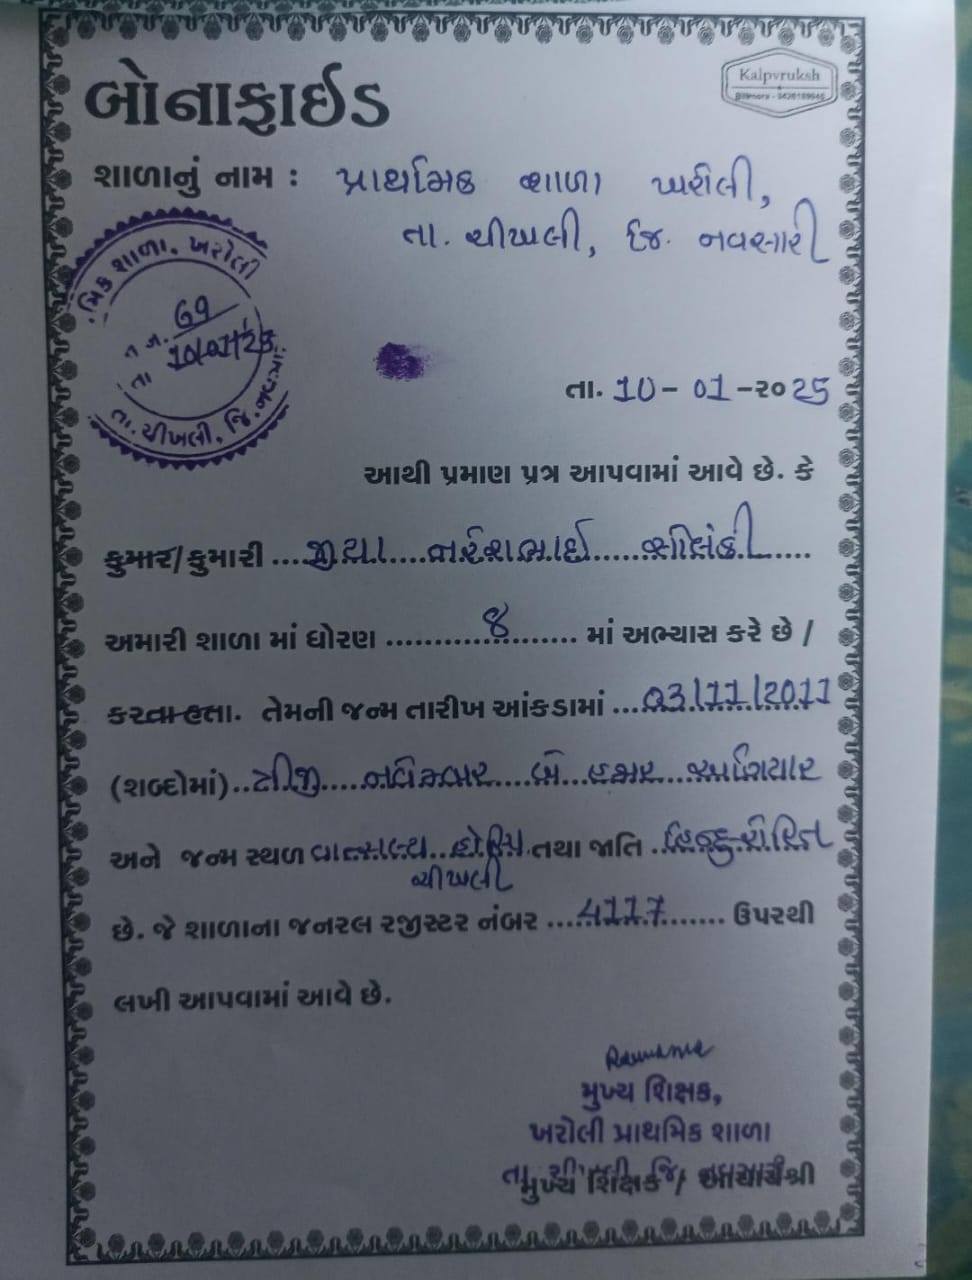 બોનાફાઈડ
Kalpvruksh
શાળાનું નામ : પ્રાથમિક શાળા ખરોલી,
તા. ચીખલી, જિ. નવસારી
મિક શાળા. ખરોલી
તા. ચીખલી, જિ. નવસા
તા. 10-01-૨૦25
આથી પ્રમાણ પત્ર આપવામાં આવે છે. કે
કુમાર/કુમારી ...જીયા....નરેશભાઈ.....સોલંકી......
અમારી શાળા માં ધોરણ ................... માં અભ્યાસ કરે છે /
કરતા હતા. તેમની જન્મ તારીખ આંકડામાં ...03/11/2011
(શબ્દોમાં)..ત્રીજી.....નવેમ્બર....બે...હજાર...અગિયાર
અને જન્મ સ્થળ વાત્સલ્ય..હોસ્પિ. તથા જાતિ ..
ચીખલી
છે. જે શાળાના જનરલ રજીસ્ટર નંબર ......4117........ ઉપરથી
લખી આપવામાં આવે છે.
મુખ્ય શિક્ષક,
ખરોલી પ્રાથમિક શાળા
મુખ્ય શિક્ષક / આચાર્યશ્રી